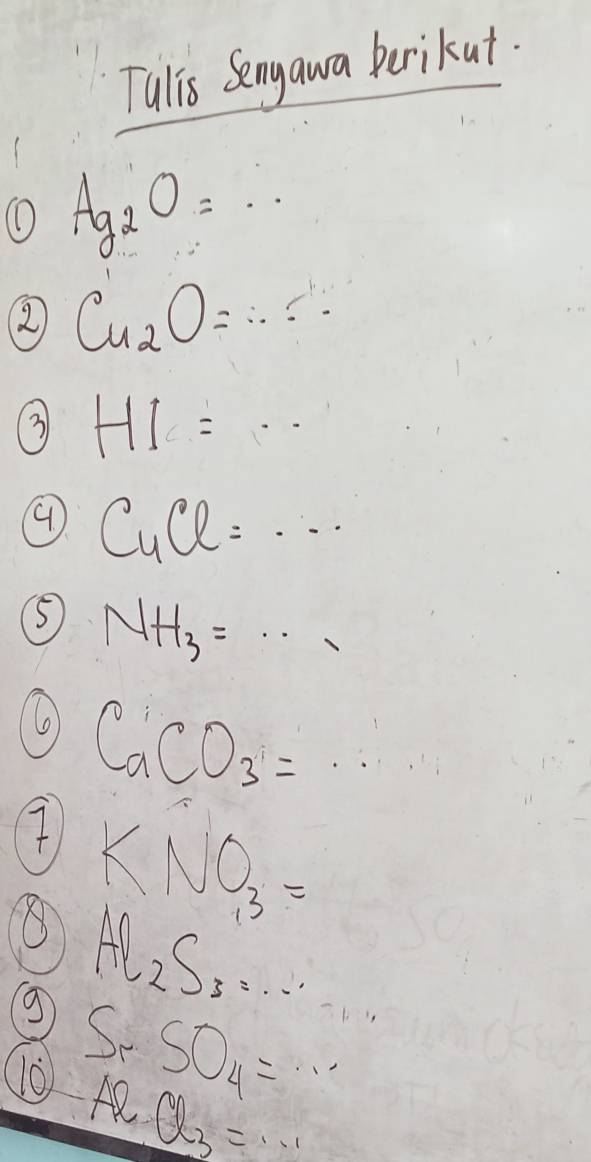 Tulis Senyawa berikut.
① Ag₂O = ...
② Cu₂O = ......
③ HI = ...
④ CuCl = ....
⑤ NH₃ = ...
⑥ CaCO₃ = .....
⑦ KNO₃ =
⑧ Al₂S₃ = ...
⑨ SrSO₄ = ...
⑩ AlCl₃ = ...